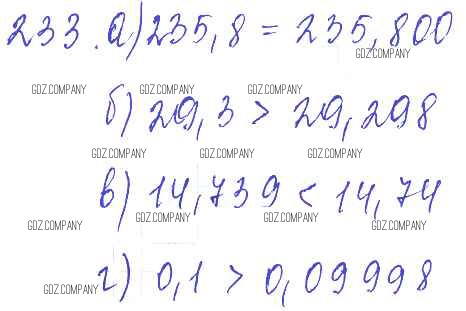 233. а) 235,8 = 235,800
GDZ.COMPANY
GDZ.COMPANY GDZ.COMPANY GDZ.COMPANY
б) 29,3 > 29,298
GDZ.COMPANY GDZ.COMPANY GDZ.COMPANY
в) 14,739 < 14,74
GDZ.COMPANY GDZ.COMPANY GDZ.COMPANY GDZ.COMPANY
г) 0,1 > 0,09998
GDZ.COMPANY